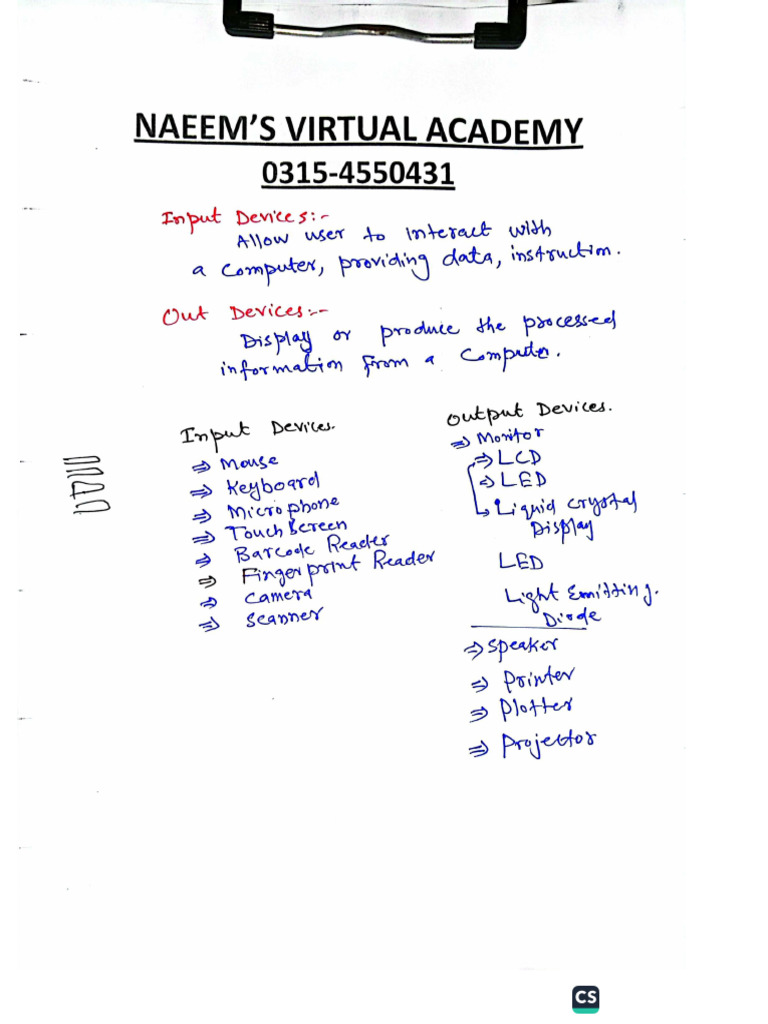 NAEEM'S VIRTUAL ACADEMY
0315-4550431
Input Devices:-
Allow user to interact with
a computer, providing data, instruction.
Out Devices:--
Display or produce the processed
information from a Computer.
Input Devices.
⇒ Mouse
⇒ Keyboard
⇒ Microphone
⇒ Touch Screen
⇒ Barcode Reader
⇒ Fingerprint Reader
⇒ Camera
⇒ Scanner
Output Devices.
⇒ Monitor
⇒ LCD
⇒ LED
↳ Liquid crystal
Display
LED
Light Emitting.
Diode
⇒ Speaker
⇒ Printer
⇒ Plotter
⇒ Projector
CS